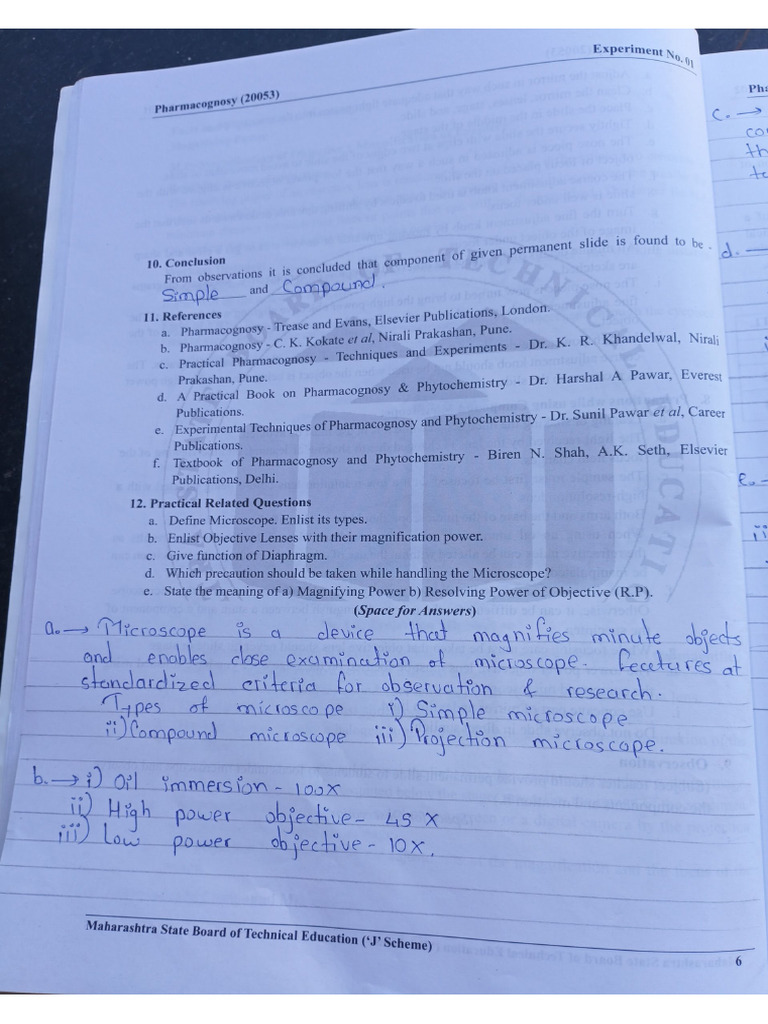 Experiment No. 01
Pharmacognosy (20053)
10. Conclusion
From observations it is concluded that component of given permanent slide is found to be .
Simple and Compound.
11. References
a. Pharmacognosy - Trease and Evans, Elsevier Publications, London.
b. Pharmacognosy - C. K. Kokate et al, Nirali Prakashan, Pune.
c. Practical Pharmacognosy - Techniques and Experiments - Dr. K. R. Khandelwal, Nirali
Prakashan, Pune.
d. A Practical Book on Pharmacognosy & Phytochemistry - Dr. Harshal A Pawar, Everest
Publications.
e. Experimental Techniques of Pharmacognosy and Phytochemistry - Dr. Sunil Pawar et al, Career
Publications.
f. Textbook of Pharmacognosy and Phytochemistry - Biren N. Shah, A.K. Seth, Elsevier
Publications, Delhi.
12. Practical Related Questions
a. Define Microscope. Enlist its types.
b. Enlist Objective Lenses with their magnification power.
c. Give function of Diaphragm.
d. Which precaution should be taken while handling the Microscope?
e. State the meaning of a) Magnifying Power b) Resolving Power of Objective (R.P).
(Space for Answers)
a. → Microscope is a device that magnifies minute objects
and enables close examination of microscope. fecetures at
standardized criteria for observation & research.
Types of microscope i) Simple microscope
ii) Compound microscope iii) Projection microscope.
b. → i) Oil immersion - 100X
ii) High power objective - 45 X
iii) Low power objective - 10X.
Maharashtra State Board of Technical Education ('J' Scheme)
6
Pha
c. →
co
th
d. —
ii